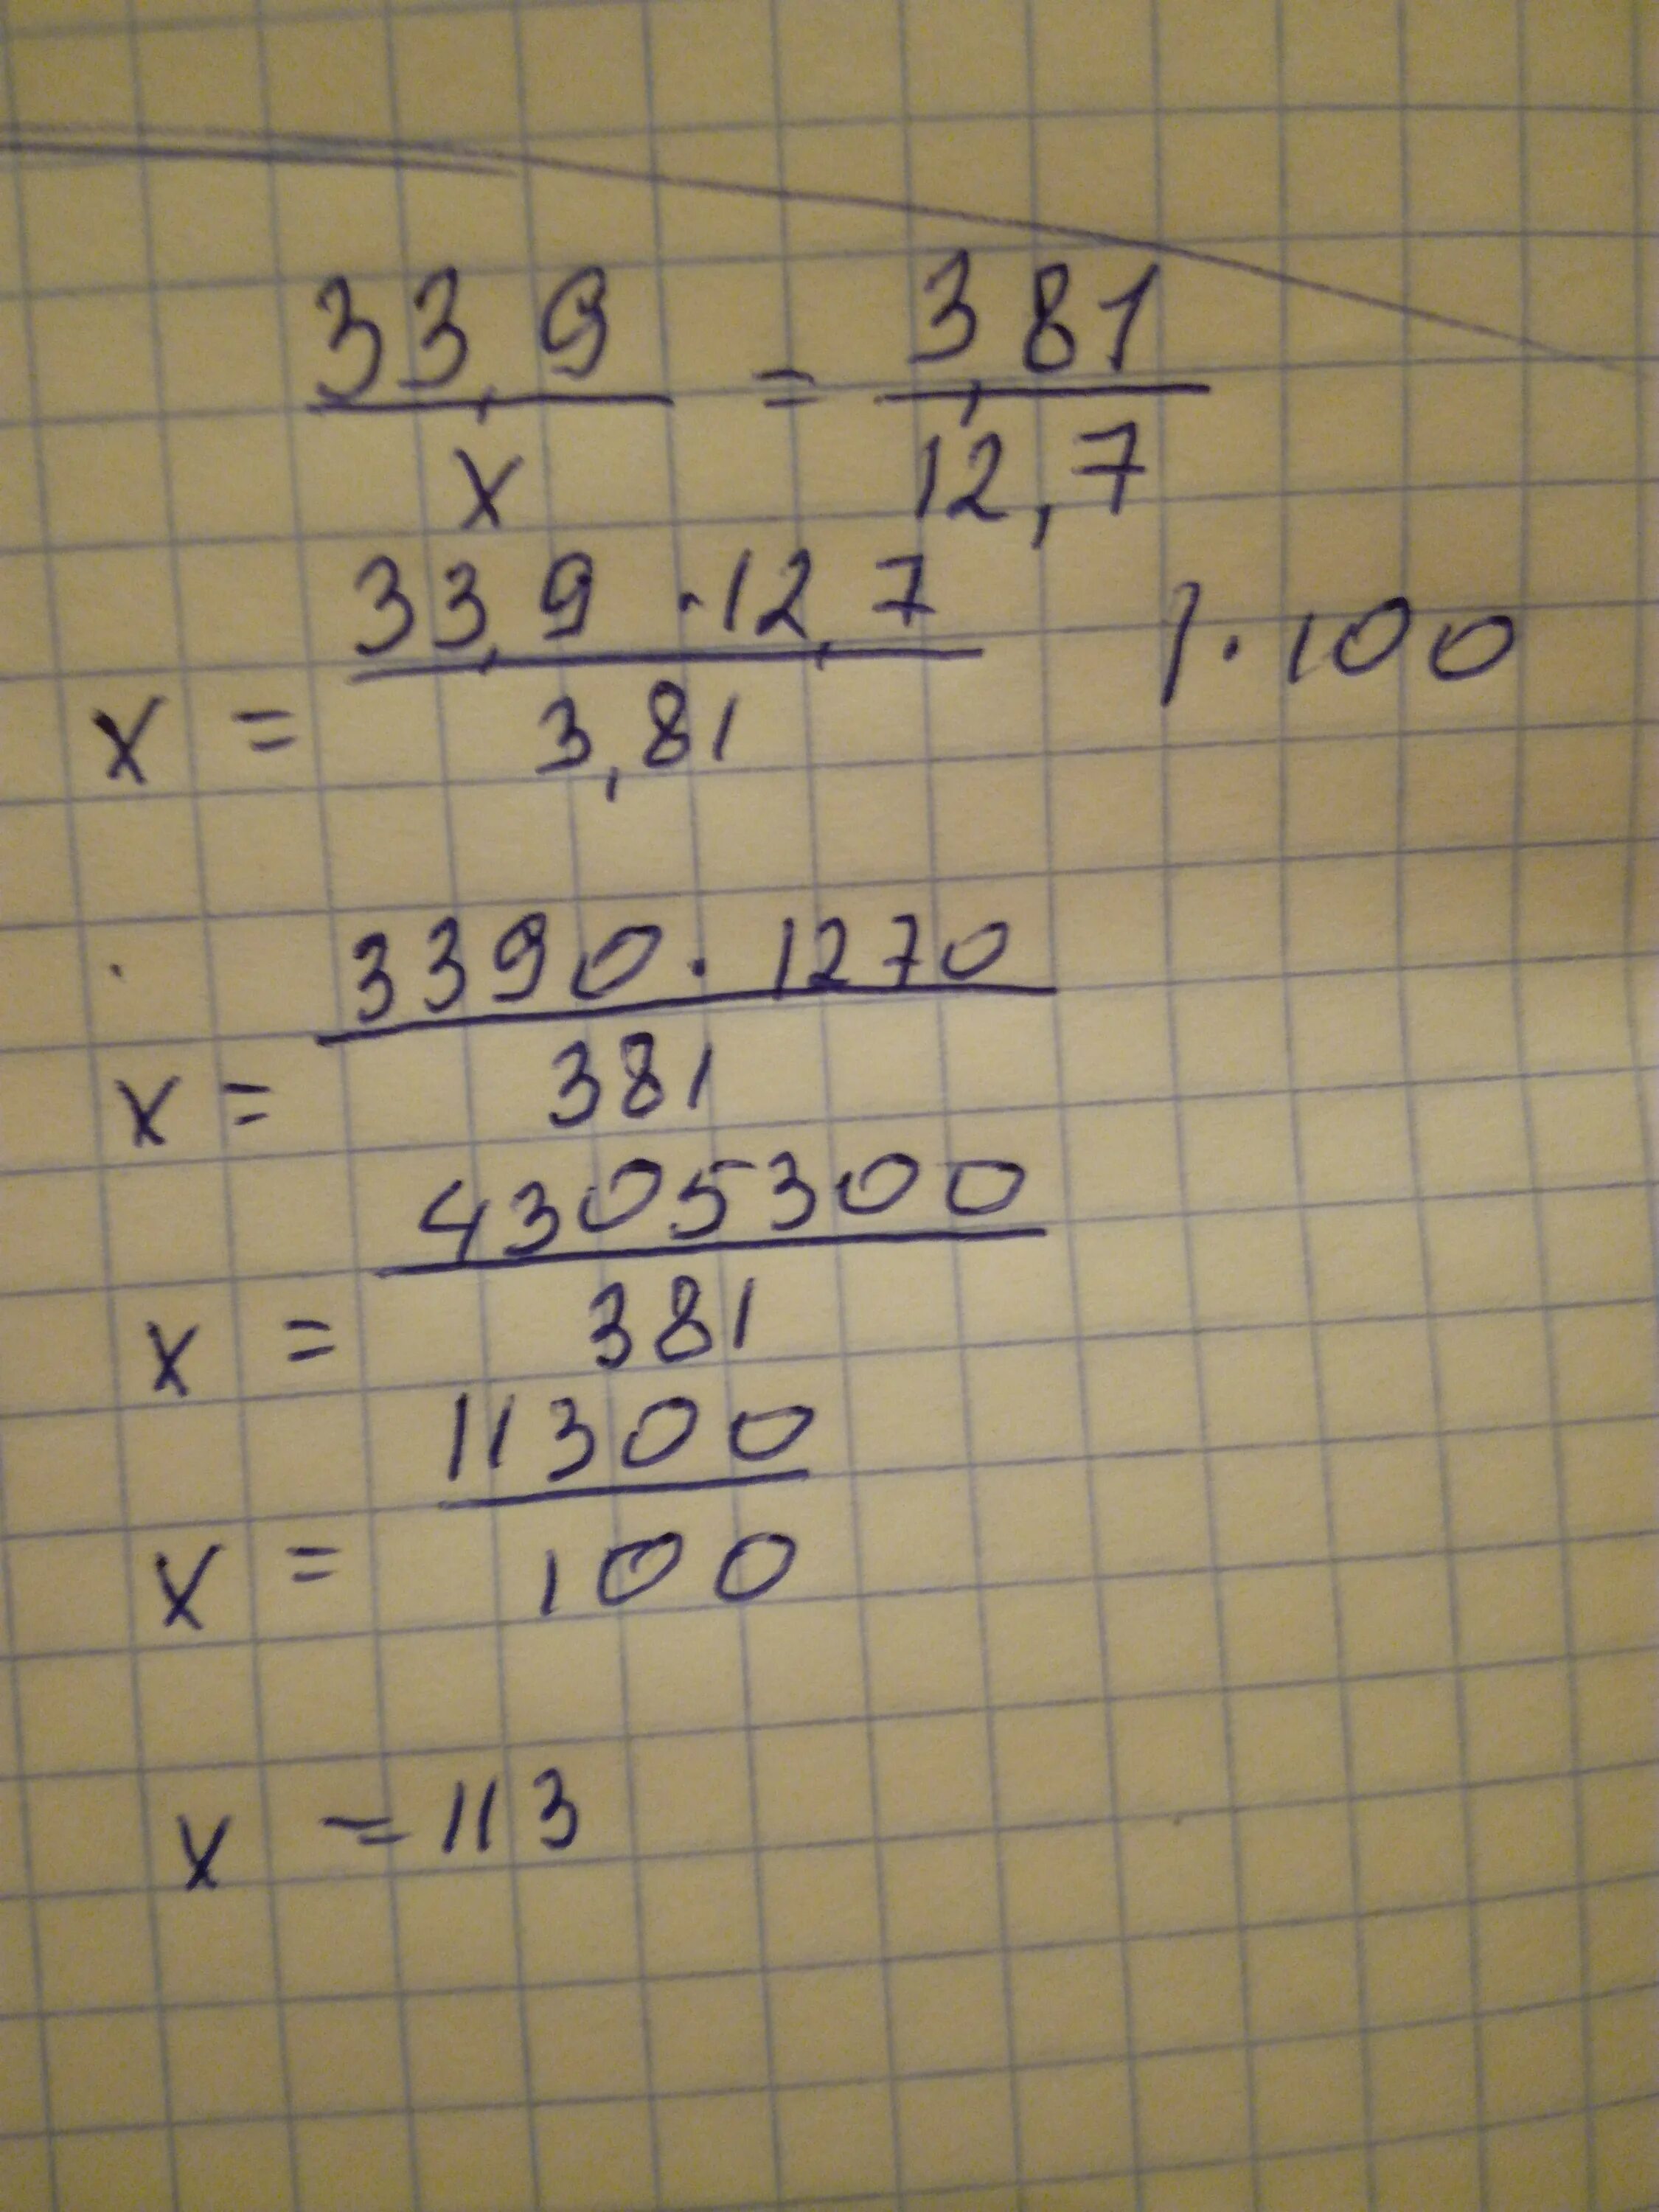 33,9 / x = 3,81 / 12,7
x = 33,9 · 12,7 / 3,81 | · 100
x = 3390 · 1270 / 381
x = 4305300 / 381
x = 11300 / 100
x = 113